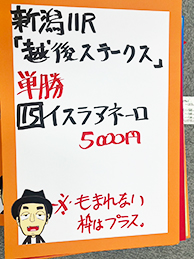 新潟11R
「越後ステークス」
単勝
15イスラアネーロ
5000円
※もまれない
枠はプラス。